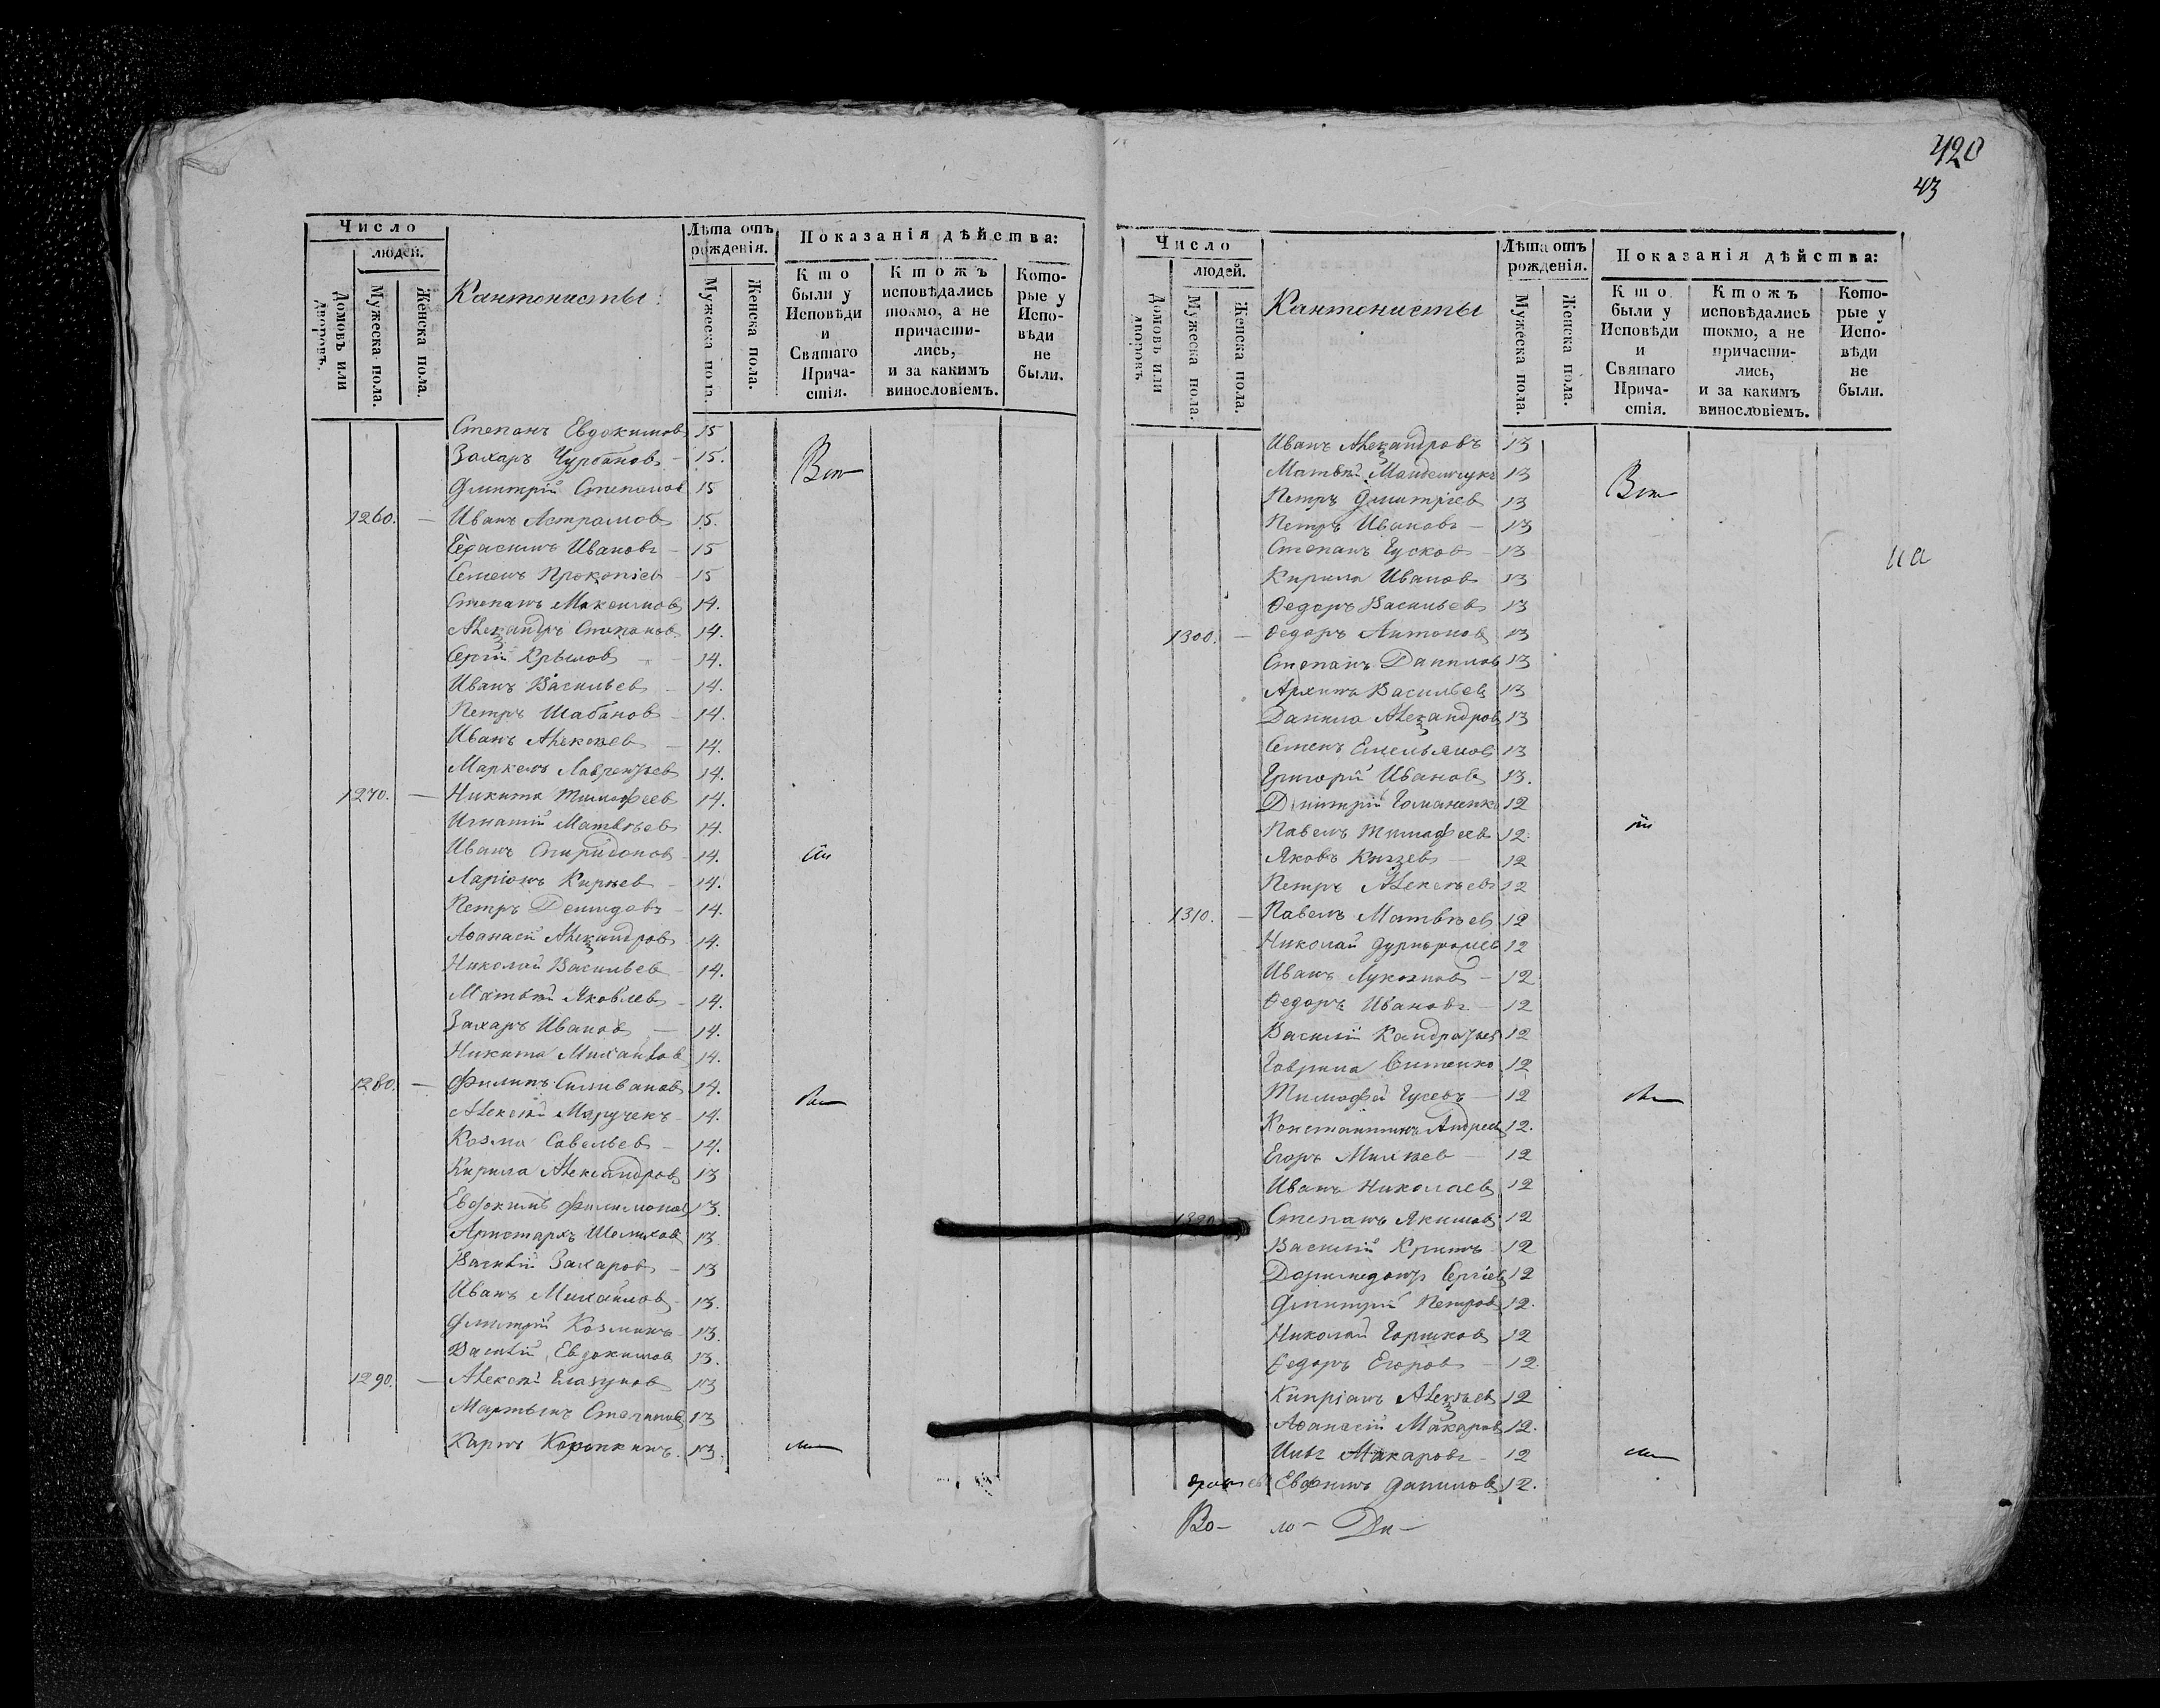 420
43
Число
людей.
Домовъ или дворовъ.
Мужеска пола.
Женска пола.
Кантонисты:
Лѣта отъ рожденія.
Мужеска пола.
Женска пола.
Показанія дѣйства:
Кто были у Исповѣди и Святаго Прича-стія.
Ктожъ исповѣдались токмо, а не причасти-лись, и за какимъ винословіемъ.
Кото-рые у Испо-вѣди не были.
Степанъ Евдокимовъ 15
Захаръ Чурбановъ - 15.
Дмитрій Степановъ 15
1260. — Иванъ 15.
Герасимъ Ивановъ - 15
Семенъ Прокопіевъ 15
Степанъ Максимовъ 14.
Александръ Степановъ 14.
Сергій Крыловъ - 14.
Иванъ Васильевъ - 14.
Петръ Шабановъ - 14.
Иванъ Алексѣевъ - 14.
Маркелъ Лаврентьевъ 14.
1270. — Никита Тимофеевъ 14.
Игнатій Матвѣевъ 14.
Иванъ Спиридоновъ 14.
Ларіонъ Кирѣевъ - 14.
Петръ Демидовъ - 14.
Аѳанасій Александровъ 14.
Николай Васильевъ - 14.
Матвѣй Яковлевъ - 14.
Захаръ Ивановъ — 14.
Никита Михайловъ 14.
1280. — Филипъ Силивановъ 14.
Алексѣй 14.
Козма Савельевъ - 14.
Кирила Александровъ 13
Евдокимъ Филимоновъ 13.
Аристархъ Шелиховъ 13
Василій Захаровъ - 13
Иванъ Михайловъ - 13.
Дмитрій Козминъ 13.
Василій Евдокимовъ 13.
1290. — Алексѣй Глазуновъ 13
Мартынъ 13
Карпъ Коропкинъ. 13.
Число
людей.
Домовъ или дворовъ
Мужеска пола.
Женска пола.
Кантонисты
Лѣта отъ рожденія.
Мужеска пола.
Женска пола.
Показанія дѣйства:
Кто были у Исповѣди и Святаго Прича-стія.
Ктожъ исповѣдались токмо, а не причасти-лись, и за какимъ винословіемъ.
Кото-рые у Испо-вѣди не были.
Иванъ Александровъ 13
Матвѣй 13
Петръ Дмитріевъ 13
Петръ Ивановъ — 13
Степанъ Гусковъ 13
Кирила Ивановъ 13
Ѳедоръ Васильевъ 13
1300. — Ѳедоръ Антоновъ 13
Степанъ Даниловъ 13
Архипъ Васильевъ 13
Данила Александровъ 13
Семенъ Емельяновъ 13
Григорій Ивановъ 13.
Дмитрій Романенко 12
Павелъ Тимофеевъ 12.
Яковъ Князевъ — 12
Петръ Алексѣевъ 12
1310. — Павелъ Матвѣевъ 12
Николай 12
Иванъ Лукояновъ - 12
Ѳедоръ Ивановъ - 12
Василій Кандратьевъ 12
Гаврила 12
Тимофей Гусевъ — 12
Константинъ Андреевъ 12.
Егоръ Михѣевъ — 12
Иванъ Николаевъ 12
1320. Степанъ Якимовъ 12
Василій 12
Доримедонтъ Сергіевъ 12
Дмитрій Петровъ 12.
Николай Горшковъ 12
Ѳедоръ Егоровъ - 12.
Кипріанъ Алексѣевъ 12
Аѳанасій Макаровъ 12.
Макаровъ - 12
Евфимъ Даниловъ 12.